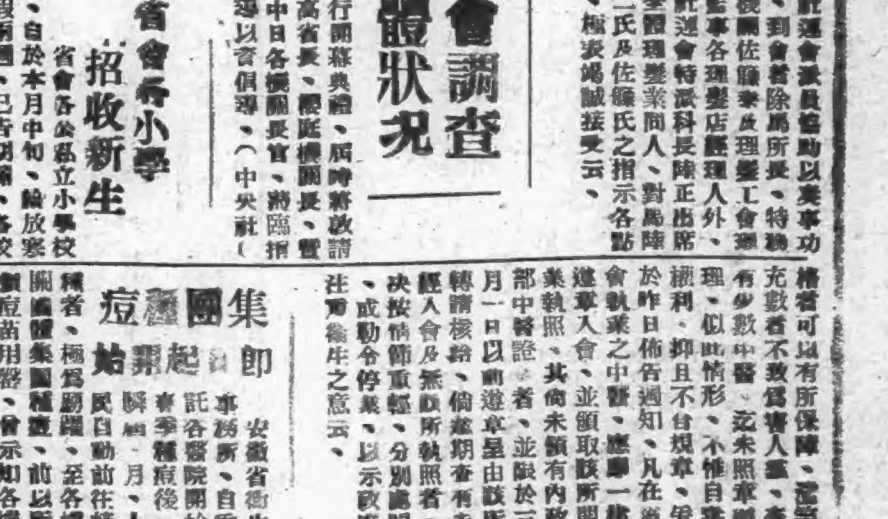 會派員協助以襄事功
、到會者除馬所長、特務
機關佐藤及理髮工會理
監事各理髮店經理人外、
運會特派科長陸正出席
全體理髮業同人、對馬陸
二氏及佐藤氏之指示各點
、極表竭誠接受云、
會調查
體狀況
行開幕典禮、屆時將敦請
高省長、櫻庭機關長、暨
中日各機關長官、將臨指
導以資倡導、(中央社(
省會各小學
招收新生
省會各公私立小學校
、自於本月中旬、輪放寒
已告期滿、各校
格者可以有所保障、濫
充數者不致貽害人羣、查
有少數中醫、迄未照章辦
理、似此情形、不惟自棄
權利、抑且不合規章、
於昨日佈告週知、凡在省
會執業之中醫、應即一律
遵章入會、並領取該所開
業執照、其尚未領有內政
部中醫證書者、並限於二
月一日以前遵章呈由該所
轉請核給、倘逾期查有未
經入會及無該所執照者、
決按情節重輕、分別處罰
、或勒令停業、以示政府
注重衛生之意云、
集團種痘
即日起開始
安徽省衛生
事務所、自委
託各醫院開始
春季種痘後
瞬屆月、人
民自動前往接
種者、極為踴躍、至各機
關團體集團種痘、前以所
領痘苗用器、曾示知各機